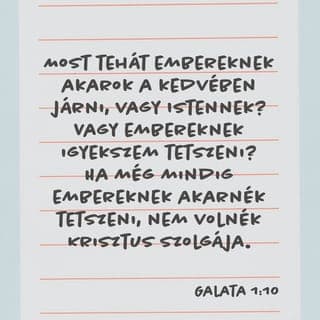 MOST TEHÁT EMBEREKNEK
AKAROK A KEDVÉBEN
JÁRNI, VAGY ISTENNEK?
VAGY EMBEREKNEK
IGYEKSZEM TETSZENI?
HA MÉG MINDIG
EMBEREKNEK AKARNÉK
TETSZENI, NEM VOLNÉK
KRISZTUS SZOLGÁJA.
GALATA 1:10